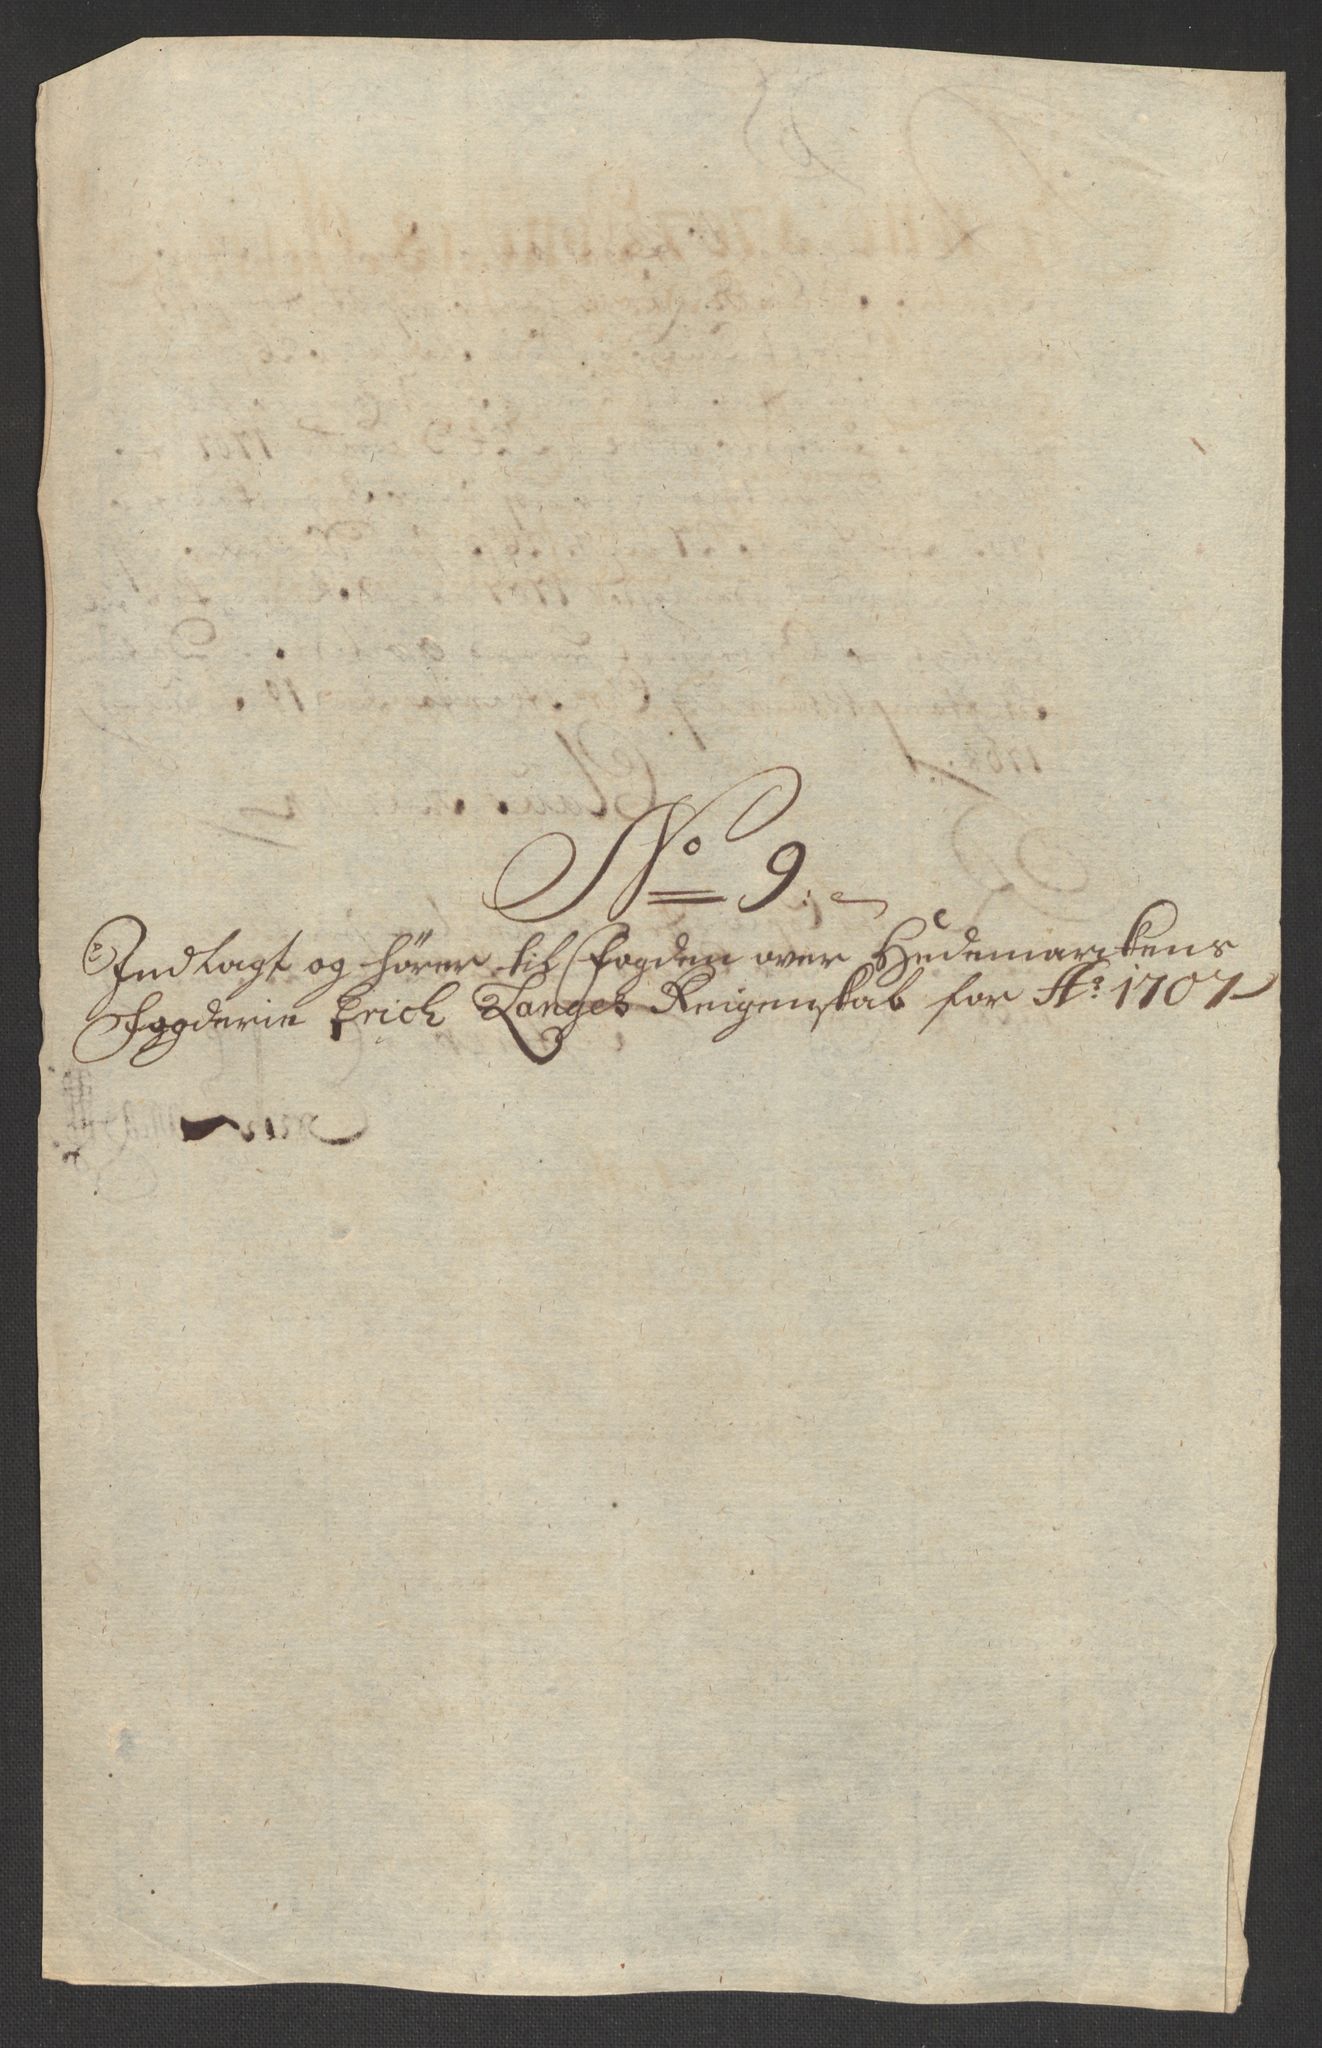 No 9.
Indlagt og hører til Fogden over Hedemarckens
Fogderie Erich Langes Reigenskab for Ao 1707